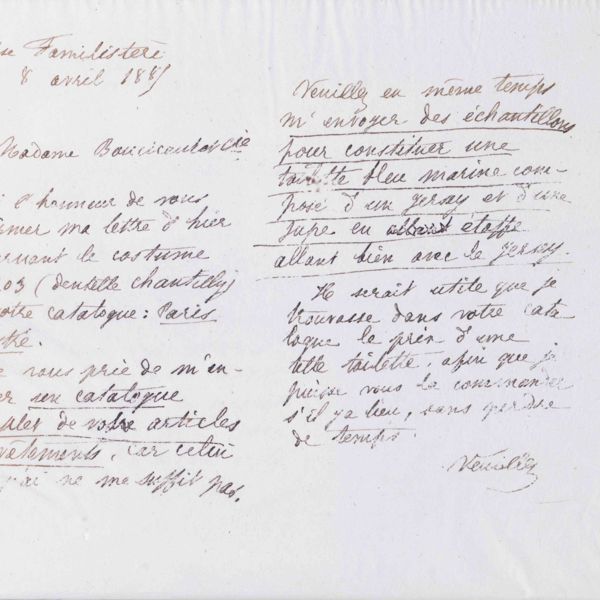 Familistère
8 avril 188
Madame Boucicaut & Cie
l'honneur de vous
mer ma lettre d'hier
ernant le costume
03 (dentelle chantilly)
otre catalogue : Paris
vous prie de m'en-
er un catalogue
plet de votre articles
vêtements, car celui
j'ai ne me suffit pas.
Veuillez en même temps
m'envoyer des échantillons
pour constituer une
toilette bleu marine com-
posé d'un jersey et d'une
jupe en allant étoffe
allant bien avec le jersey.
Il serait utile que je
trouvasse dans votre cata-
logue le prix d'une
telle toilette, afin que je
puisse vous la commander
s'il y a lieu, sans perdre
de temps.
Veuillez